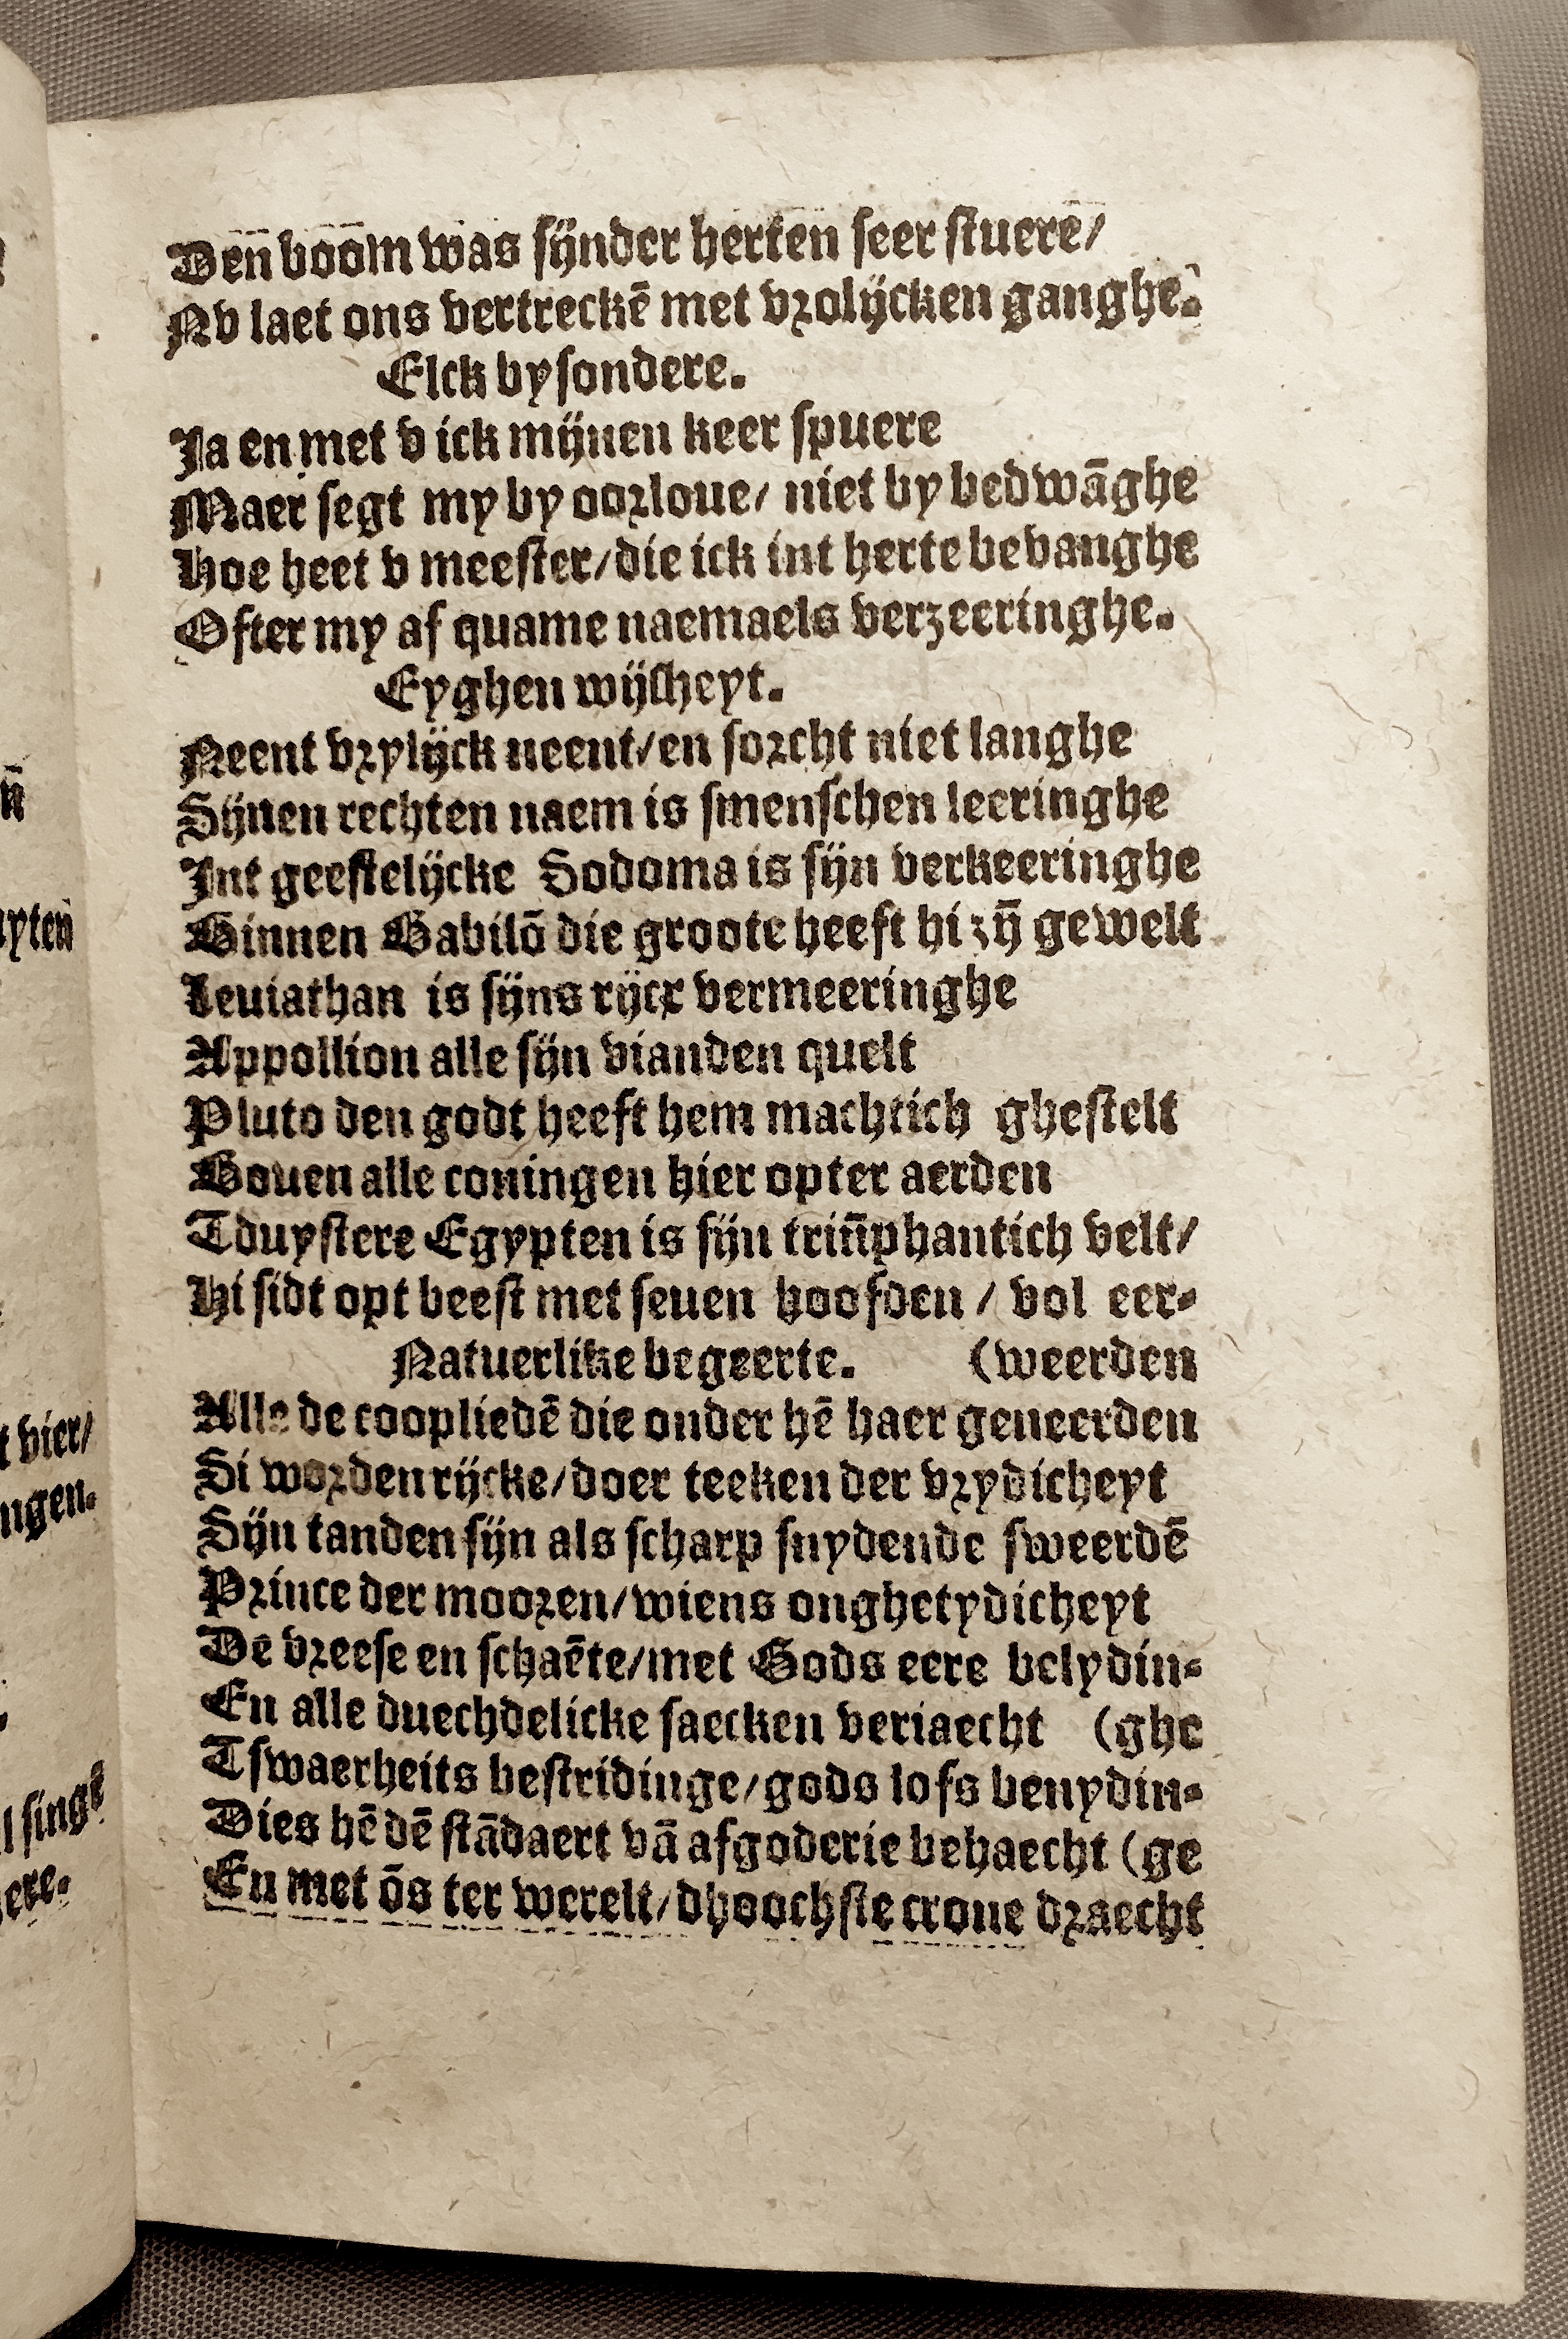 Den boom was sijnder herten seer stuere/
Nv laet ons vertreckē met vrolijcken ganghe.
Elck bysondere.
Ja en met v ick mijnen keer spuere
Maer segt my by oorloue/ niet by bedwāghe
Hoe heet v meester/die ick int herte bevanghe
Ofter my af quame naemaels verzeeringhe.
Eyghen wijsheyt.
Neent vrylijck neent/en sorcht niet langhe
Sijnen rechten naem is smenschen leeringhe
Int geestelijcke Sodoma is sijn verkeeringhe
Binnen Babilō die groote heeft hi zȳ gewelt
Leuiathan is sijns rijcx vermeeringhe
Appollion alle sijn vianden quelt
Pluto den godt heeft hem machtich ghestelt
Bouen alle coningen hier opter aerden
Tduystere Egypten is sijn triūphantich velt/
Hi sidt opt beest met seuen hoofden / vol eer-
Natuerlike begeerte. (weerden
Alle de cooplieDē die onder hē haer geneerden
Si worden rijcke/doer teeken der vrydicheyt
Sijn tanden sijn als scharp snydende sweerdē
Prince der mooren/wiens onghetydicheyt
De vreese en schaēte/met Gods eere belydin-
En alle duechdelicke saecken veriaecht (ghe
Tswaerheits bestridinge/gods lofs benydin-
Dies hē dē stādaert vā afgoderie behaecht (ge
En met ōs ter werelt/dhoochste crone draecht